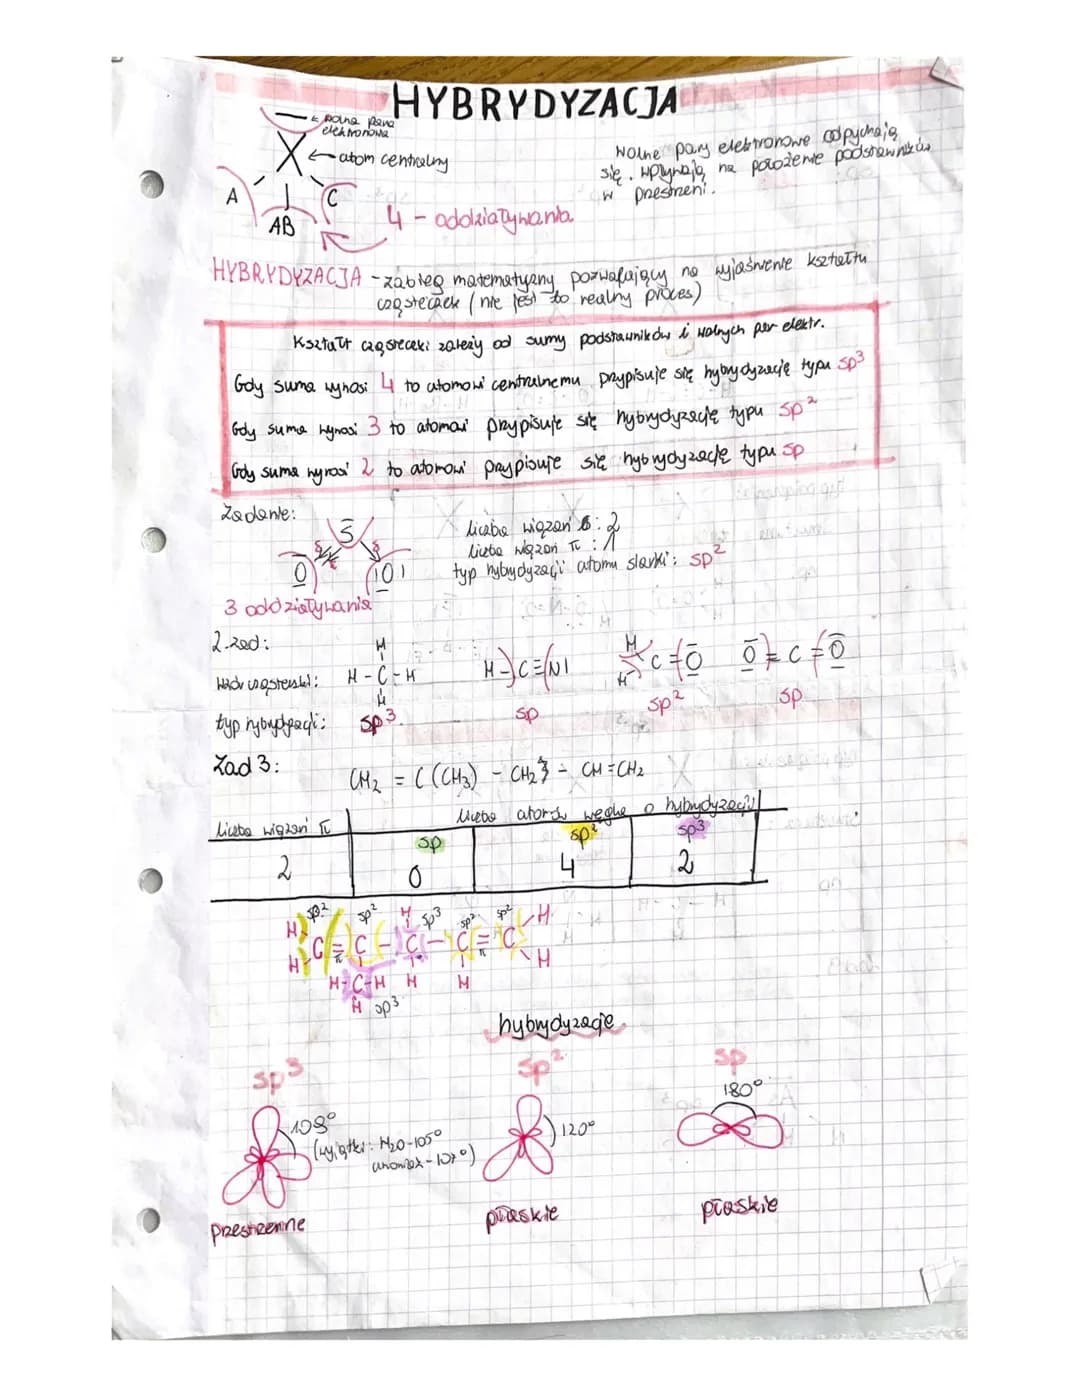 HYBRYDYZACJA
← wolna para
elektronowa
X ← atom centralny
A
AB
C
4 - oddziaływania
Wolne pary elektronowe odpychają
się. Wpływają na położenie podstawników
w przestrzeni.
HYBRYDYZACJA - zabieg matematyczny pozwalający na wyjaśnienie kształtu
cząsteczek (nie jest to realny proces)
Kształt cząsteczki zależy od sumy podstawników i wolnych par elektr.
Gdy suma wynosi 4 to atomowi centralnemu przypisuje się hybrydyzację typu sp³
Gdy suma wynosi 3 to atomowi przypisuje się hybrydyzację typu sp²
Gdy suma wynosi 2 to atomowi przypisuje się hybrydyzację typu sp
Zadanie:
S
O O
3 oddziaływania
liczba wiązań δ: 2
liczba wiązań π : 1
typ hybrydyzacji atomu siarki: sp²
2. zad:
wzór cząsteczki:
H
H - C - H
H
H - C ≡ N
H
H
C = O
O = C = O
typ hybrydyzacji:
sp³ sp sp² sp
Zad 3:
CH₂ = C (CH₃) - CH₂ - CH = CH₂
liczba wiązań π
liczba atomów węgla o hybrydyzacji
sp sp² sp³
2 0 4 2
sp² sp² H sp³ sp² sp² H
H
H
C = C - C - C = C
π π
H
H-C-H H H
H sp³
hybrydyzacje
sp³ sp² sp
109° 120° 180°
(wyjątki: H₂O-105°
amoniak-107°)
przestrzenne płaskie płaskie